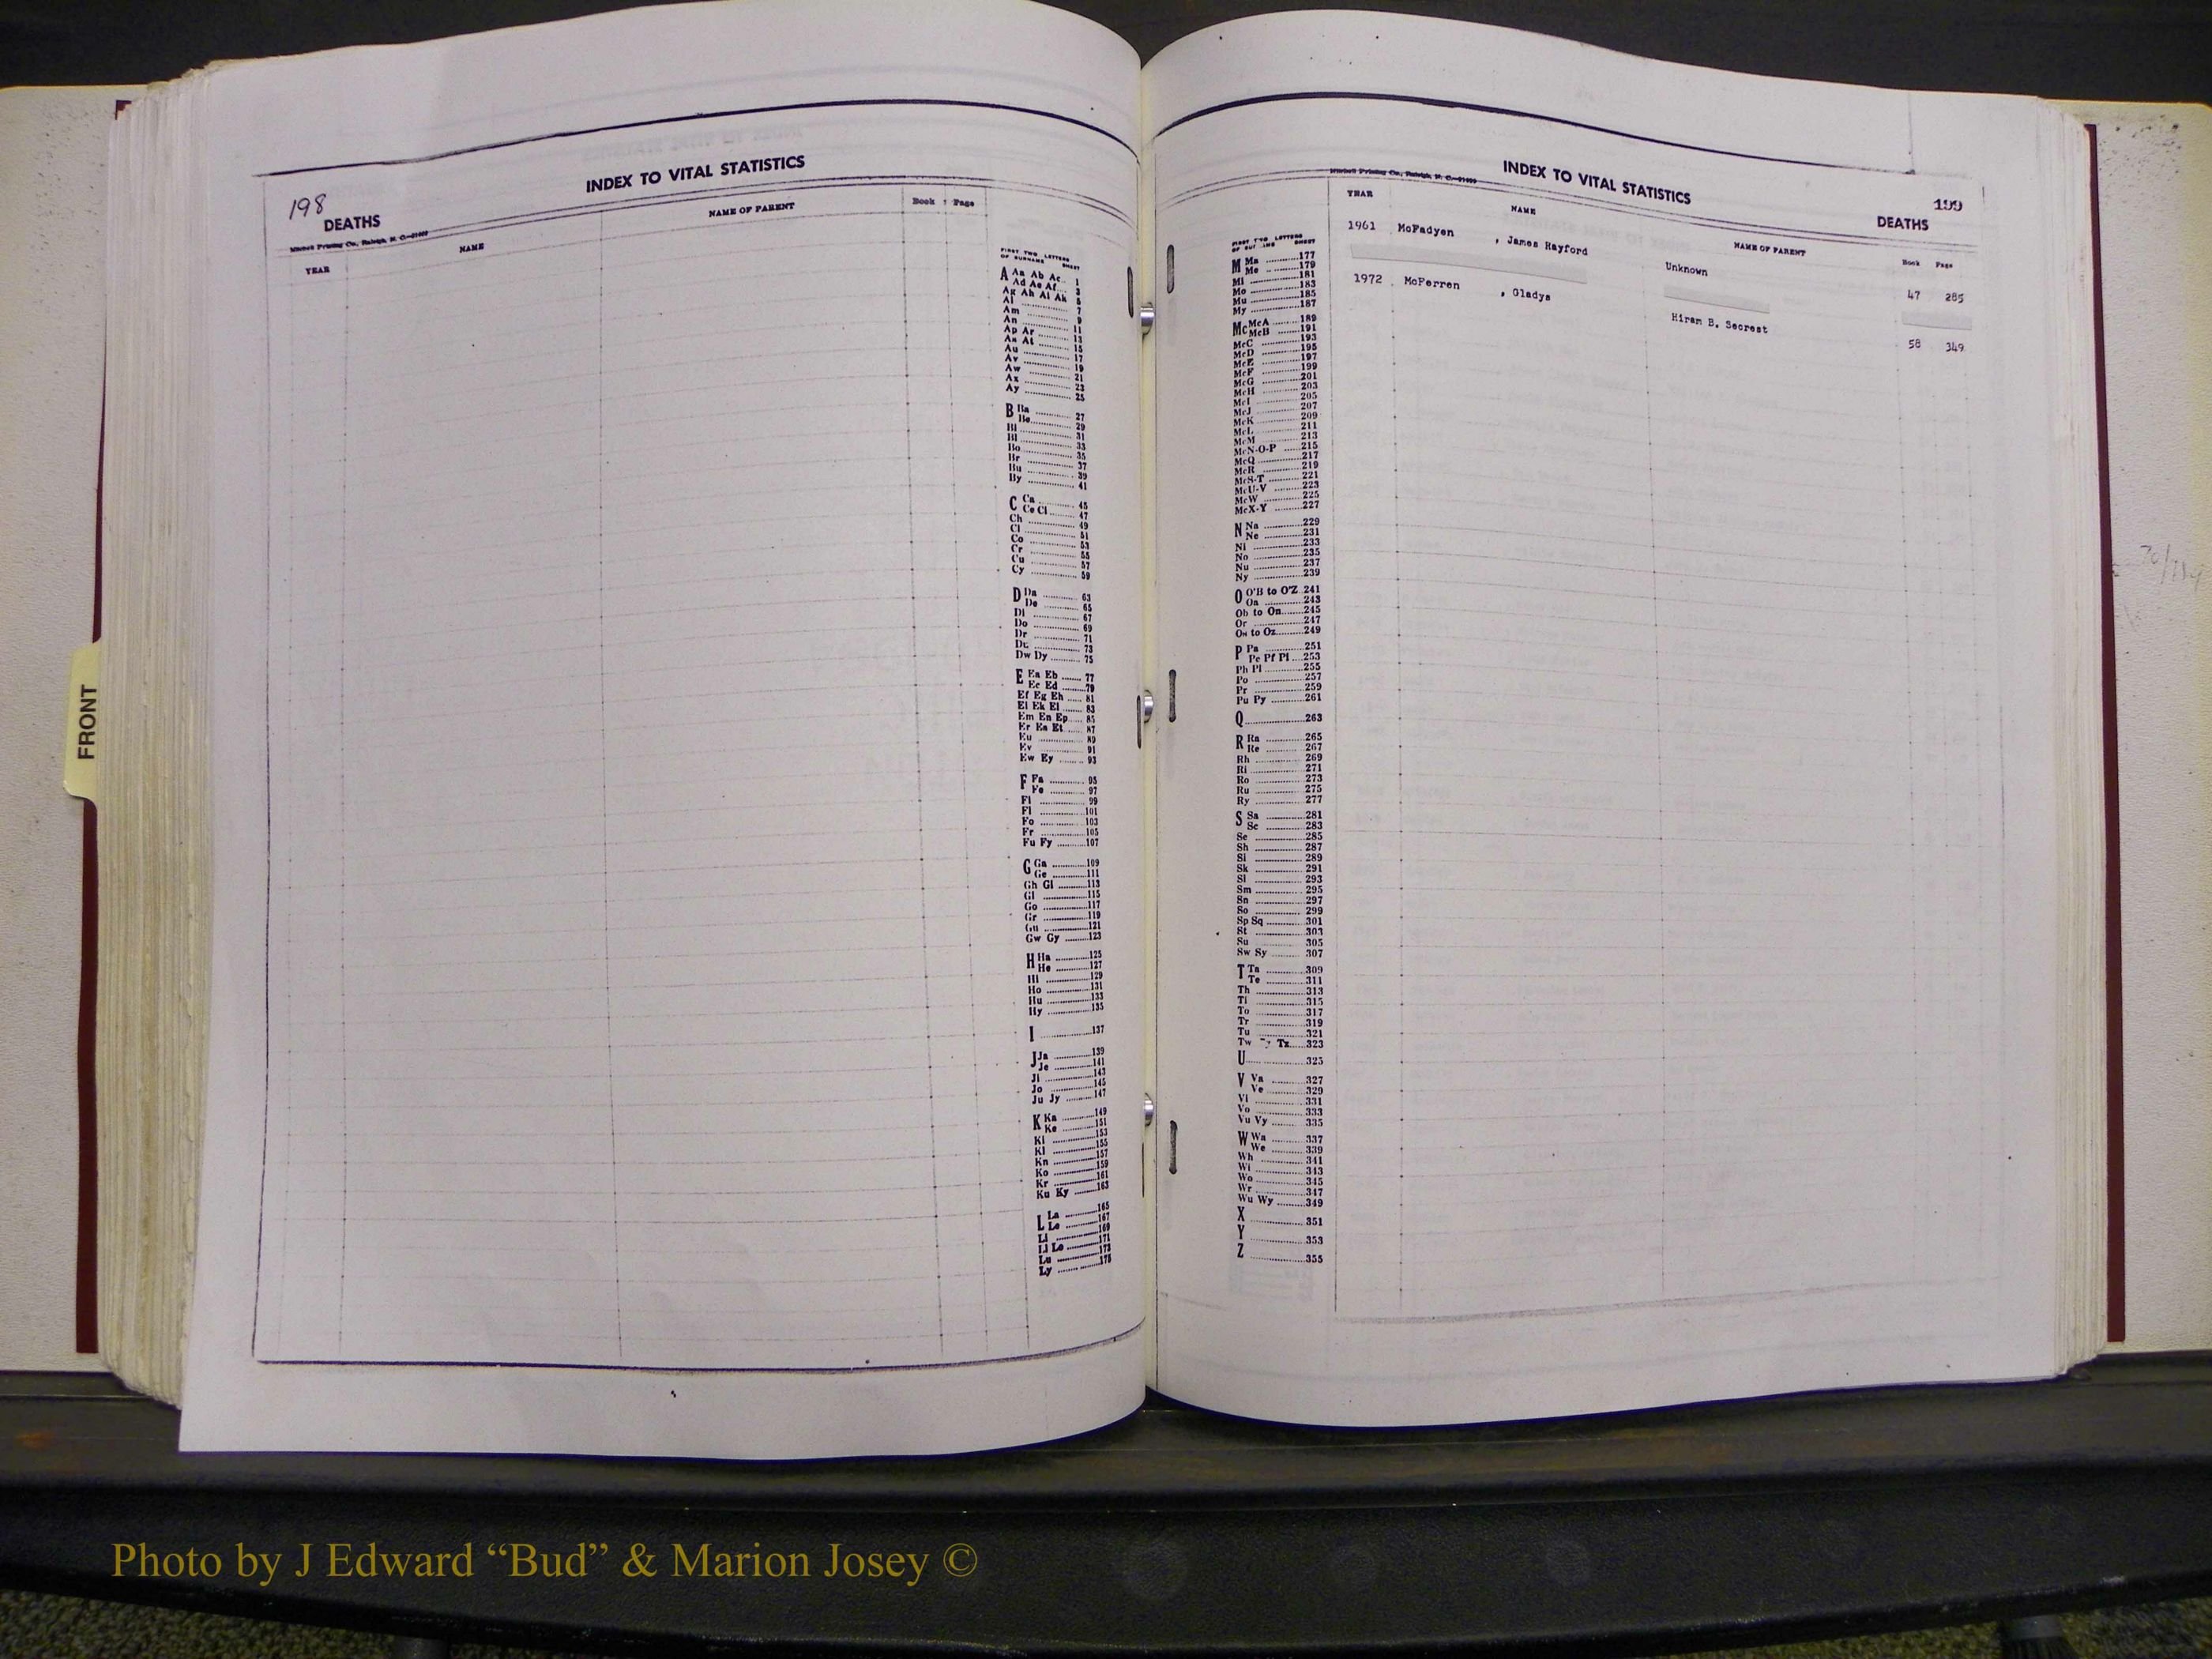 198
DEATHS
INDEX TO VITAL STATISTICS
Mitchell Printing Co., Raleigh, N. C.
YEAR
NAME
NAME OF PARENT
Book Page
FIRST TWO LETTERS
OF SURNAME SHEET
A Aa Ab Ac 1
Ad Ae Af 3
Ag Ah Ai Ak 5
Al 7
Am 9
An 11
Ap Ar 13
As At 15
Au 17
Av 19
Aw 21
Ax 23
Ay 25
B Ba 27
Be 29
Bi 31
Bl 33
Bo 35
Br 37
Bu 39
By 41
C Ca 45
Ce Ci 47
Ch 49
Cl 51
Co 53
Cr 55
Cu 57
Cy 59
D Da 63
De 65
Di 67
Do 69
Dr 71
Du 73
Dw Dy 75
E Ea Eb 77
Ec Ed 79
Ef Eg Eh 81
Ei Ek El 83
Em En Ep 85
Er Es Et 87
Eu 89
Ev 91
Ew Ey 93
F Fa 95
Fe 97
Fi 99
Fl 101
Fo 103
Fr 105
Fu Fy 107
G Ga 109
Ge 111
Gh Gi 113
Gl 115
Go 117
Gr 119
Gu 121
Gw Gy 123
H Ha 125
He 127
Hi 129
Ho 131
Hu 133
Hy 135
I 137
J Ja 139
Je 141
Ji 143
Jo 145
Ju Jy 147
K Ka 149
Ke 151
Ki 153
Kl 155
Kn 157
Ko 159
Kr 161
Ku Ky 163
L La 165
Le 167
Li 169
Ll Lo 171
Lu 173
Ly 175
FRONT
INDEX TO VITAL STATISTICS
199
DEATHS
Mitchell Printing Co., Raleigh, N. C.
YEAR
NAME
NAME OF PARENT
Book Page
1961 McFadyen , James Rayford Unknown 47 285
1972 McFerren , Gladys Hiram B. Secrest 58 349
FIRST TWO LETTERS
OF SURNAME SHEET
M Ma 177
Me 179
Mi 181
Mo 183
Mu 185
My 187
Mc McA 189
McB 191
McC 193
McD 195
McE 197
McF 199
McG 201
McH 203
McI 205
McJ 207
McK 209
McL 211
McM 213
McN-O-P 215
McQ 217
McR 219
McS-T 221
McU-V 223
McW 225
McX-Y 227
N Na 229
Ne 231
Ni 233
No 235
Nu 237
Ny 239
O O'B to O'Z 241
Oa 243
Ob to On 245
Or 247
Os to Oz 249
P Pa 251
Pe Pf Pi 253
Ph Pl 255
Po 257
Pr 259
Pu Py 261
Q 263
R Ra 265
Re 267
Rh 269
Ri 271
Ro 273
Ru 275
Ry 277
S Sa 281
Sc 283
Se 285
Sh 287
Si 289
Sk 291
Sl 293
Sm 295
Sn 297
So 299
Sp Sq 301
St 303
Su 305
Sw Sy 307
T Ta 309
Te 311
Th 313
Ti 315
To 317
Tr 319
Tu 321
Tw Ty Tz 323
U 325
V Va 327
Ve 329
Vi 331
Vo 333
Vu Vy 335
W Wa 337
We 339
Wh 341
Wi 343
Wo 345
Wr 347
Wu Wy 349
X 351
Y 353
Z 355
Photo by J Edward “Bud” & Marion Josey ©